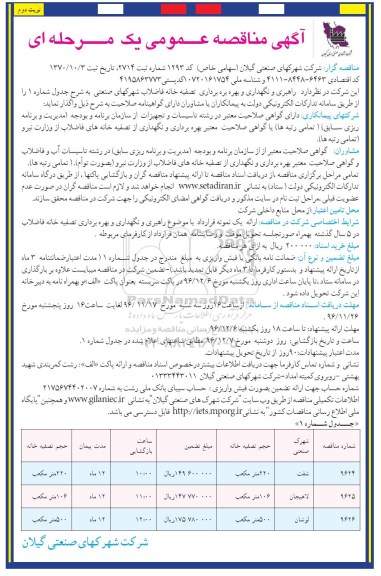 نوبت دوم
آگهی مناقصه عمومی یک مرحله ای
مناقصه گزار: شرکت شهرکهای صنعتی گیلان (سهامی خاص) کد ۱۲۹۳ شماره ثبت ۲۷۱۴، تاریخ ثبت ۱۳۷۰/۱۰/۳
کد اقتصادی ۶۴۶۳-۸۴۴۸-۴۱۱۱ و شناسه ملی ۱۰۷۲۰۱۶۱۷۵۴ کدپستی ۴۱۹۵۸۶۳۷۷۳
این شرکت در نظر دارد راهبری و نگهداری و بهره برداری تصفیه خانه فاضلاب شهرکهای صنعتی به شرح جدول شماره ۱ را
از طریق سامانه تدارکات الکترونیکی دولت به پیمانکاران یا مشاوران دارای گواهینامه صلاحیت به شرح ذیل واگذار نماید:
شرکتهای پیمانکاری: دارای گواهی صلاحیت معتبر در رشته تاسیسات و تجهیزات از سازمان برنامه و بودجه (مدیریت و برنامه
ریزی سابق) (تمامی رتبه ها) یا گواهی صلاحیت معتبر بهره برداری و نگهداری از تصفیه خانه های فاضلاب از وزارت نیرو
(تمامی رتبه ها).
مشاوران: گواهی صلاحیت معتبر از سازمان برنامه و بودجه (مدیریت و برنامه ریزی سابق) در رشته تاسیسات آب و فاضلاب
و گواهی صلاحیت معتبر بهره برداری و نگهداری از تصفیه خانه های فاضلاب از وزارت نیرو (بصورت توأم). (تمامی رتبه ها).
تمامی مراحل برگزاری مناقصه از دریافت اسناد مناقصه تا ارائه پیشنهاد مناقصه گران و بازگشایی پاکتها، از طریق درگاه سامانه
تدارکات الکترونیکی دولت (ستاد) به نشانی www.setadiran.ir انجام خواهد شد و لازم است مناقصه گران در صورت عدم
عضویت قبلی، مراحل ثبت نام در سایت مذکور و دریافت گواهی امضای الکترونیکی را جهت شرکت در مناقصه محقق سازند.
محل تامین اعتبار: از محل منابع داخلی شرکت
شرایط اختصاصی شرکت در مناقصه: ارائه یک نمونه قرارداد با موضوع راهبری و نگهداری و بهره برداری تصفیه خانه فاضلاب
در ۵ سال گذشته بهمراه صورتجلسه تحویل موقت و رضایتنامه همان قرارداد از کارفرمای مربوطه.
مبلغ خرید اسناد: ۲۰۰۰۰۰ ریال به ازای هر مناقصه.
مبلغ تضمین و نوع آن: ضمانت نامه بانکی یا فیش واریزی به مبلغ مندرج در جدول شماره ۱ (مدت اعتبار ضمانتنامه ۳ ماه
از تاریخ ارائه پیشنهاد و بدستور کارفرما تا ۳ ماه دیگر قابل تمدید باشد) - تضمین شرکت در مناقصه میبایست علاوه بر بارگذاری
در سامانه ستاد، تا پایان ساعت اداری روز یکشنبه مورخ ۹۶/۱۲/۶ در پاکت سربسته بعنوان پاکت «الف» به همراه نامه به دبیرخانه
این شرکت تحویل داده شود.
مهلت ارائه پیشنهاد: تا ساعت ۱۸ روز یکشنبه ۹۶/۱۲/۶
ساعت و تاریخ بازگشایی: روز دوشنبه مورخ ۹۶/۱۲/۷ مطابق ساعتهای اعلام شده در جدول شماره ۱.
مدت اعتبار پیشنهاد: ۹۰ روز از تاریخ تحویل پیشنهادات.
اطلاعات تکمیلی مناقصه از طریق وب سایت "شرکت شهرک های صنعتی گیلان" به نشانی www.gilaniec.ir و همچنین "پایگاه
ملی اطلاع رسانی مناقصات کشور" به نشانی http://iets.mporg.ir قابل دسترسی می باشد.
«جدول شماره ۱»
شماره مناقصه شهرک صنعتی حجم تصفیه خانه مبلغ تضمین ساعت بازگشایی مدت پیمان حجم تصفیه خانه
۹۶۲۴ شفت ۲۲۰متر مکعب ۱۴۹ ۶۰۰ ۰۰۰ریال ۱۰:۰۰ ۱۲ ماه ۲۲۰متر مکعب
۹۶۲۵ لاهیجان ۱۰۶متر مکعب ۱۴۷ ۷۷۰ ۰۰۰ریال ۱۱:۰۰ ۱۲ ماه ۱۰۶متر مکعب
۹۶۲۶ لوشان ۵۰۰متر مکعب ۱۷۵ ۷۸۰ ۰۰۰ریال ۱۲:۰۰ ۱۲ ماه ۵۰۰متر مکعب
شرکت شهرکهای صنعتی گیلان